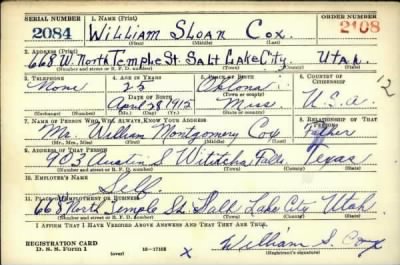 SERIAL NUMBER 1. NAME (Print) ORDER NUMBER
2084 William Sloan Cox. 2108
(First) (Middle) (Last)
2. ADDRESS (Print)
668 W. North Temple St. Salt Lake City, Utah.
(Number and street or R. F. D. number) (Town) (County) (State)
3. TELEPHONE 4. AGE IN YEARS 5. PLACE OF BIRTH 6. COUNTRY OF CITIZENSHIP
None
DATE OF BIRTH (Town or county)
April 28 1912 Miss. U.S.A. 12
(Exchange) (Number) (Mo.) (Day) (Yr.) (State or country)
7. NAME OF PERSON WHO WILL ALWAYS KNOW YOUR ADDRESS 8. RELATIONSHIP OF THAT PERSON
Mr. William Montgomery Cox Father
(Mr., Mrs., Miss) (First) (Middle) (Last)
9. ADDRESS OF THAT PERSON
903 Austin S Falls, Texas
(Number and street or R. F. D. number) (Town) (County) (State)
10. EMPLOYER'S NAME
Self.
11. PLACE OF EMPLOYMENT OR BUSINESS
668 North Temple St. Lake City Utah.
(Number and street or R. F. D. number) (Town) (County) (State)
I AFFIRM THAT I HAVE VERIFIED ABOVE ANSWERS AND THAT THEY ARE TRUE.
REGISTRATION CARD
D. S. S. Form 1 (over) x William S. Cox
(Registrant's signature)